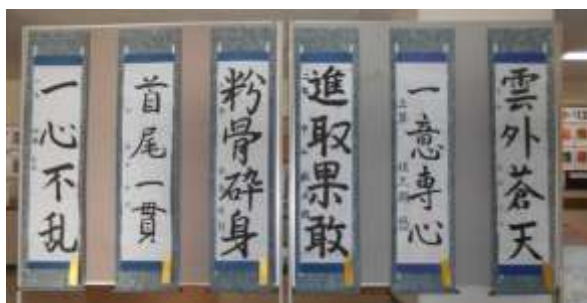 雲外蒼天
一意専心
進取果敢
粉骨砕身
首尾一貫
一心不乱